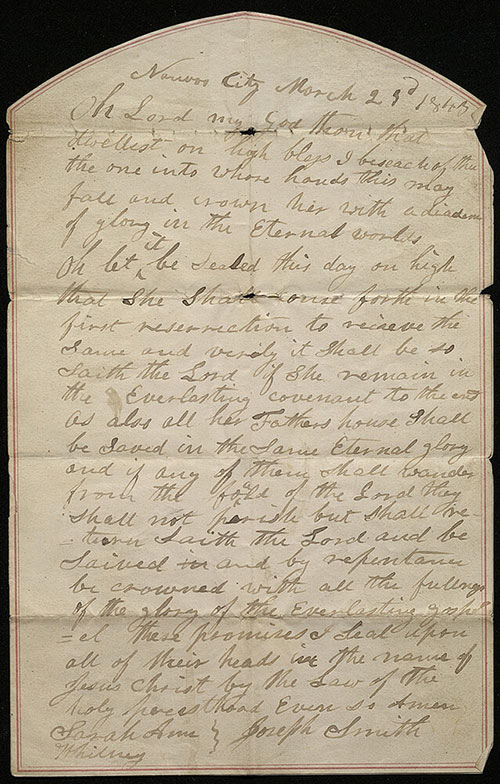 Nauvoo City March 23d 1843
Oh Lord my God thou that
dwellest on high bless I beseach of the
the one into whose hands this may
fall and crown her with a diadem
of glory in the Eternal worlds
Oh let it be Sealed this day on high
that She Shall come forth in the
first reserrection to recieve the
Same and verily it Shall be so
Saith the Lord if She remain in
the Everlasting covenant to the end
as also all her Fathers house Shall
be Saved in the Same Eternal glory
and if any of them Shall wander
from the foald of the Lord they
Shall not perish but Shall re-
-turn Saith the Lord and be
Saived in and by repentance
be crowned with all the fullness
of the glory of the Everlasting gosp-
=el these promises I Seal upon
all of their heads in the name of
Jesus Christ by the Law of the
holy preesthood Even so Amen
Sarah Ann } Joseph Smith
Whitney